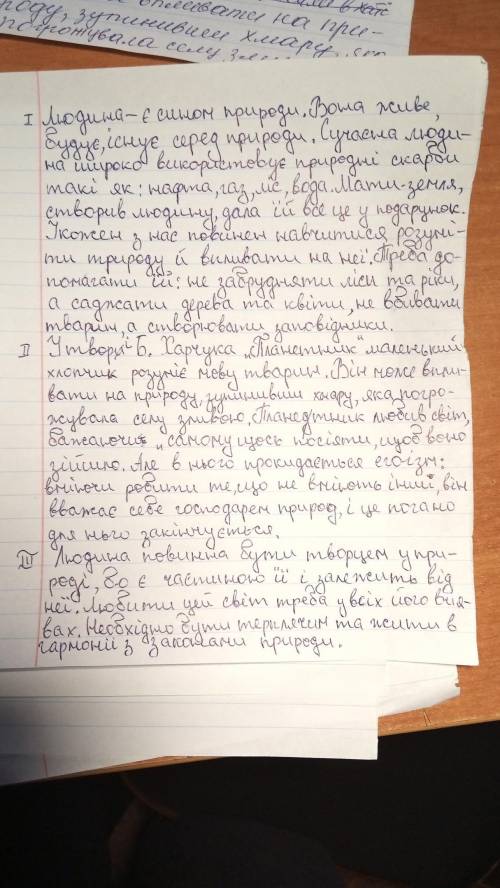 зупинивши хмару, яка
I Людина – є сином природи. Вона живе,
будує, існує серед природи. Сучасна люди-
на широко використовує природні скарби
такі як: нафта, газ, ліс, вода. Мати-земля,
створив людину, дала їй все це у подарунок.
І кожен з нас повинен навчитися розумі-
ти природу й впливати на неї. Треба до-
помагати їй: не забрудняти ліси та ріки,
а саджати дерева та квіти, не вбивати
тварин, а створювати заповідники.
II У творі Б. Харчука „Планетник" маленький
хлопчик розуміє мову тварин. Він може впли-
вати на природу, зупинивши хмару, яка погро-
жувала селу зливою. Планетник любив світ,
бажаючи „самому щось посіяти, щоб воно
зійшло. Але в нього прокидається егоїзм:
вміючи робити те, що не вміють інші, він
вважає себе господарем природ, і це погано
для нього закінчується.
III Людина повинна бути творцем у при-
роді, бо є частиною її і залежить від
неї. Любити цей світ треба у всіх його вия-
вах. Необхідно бути терплячим та жити в
гармонії з законами природи.